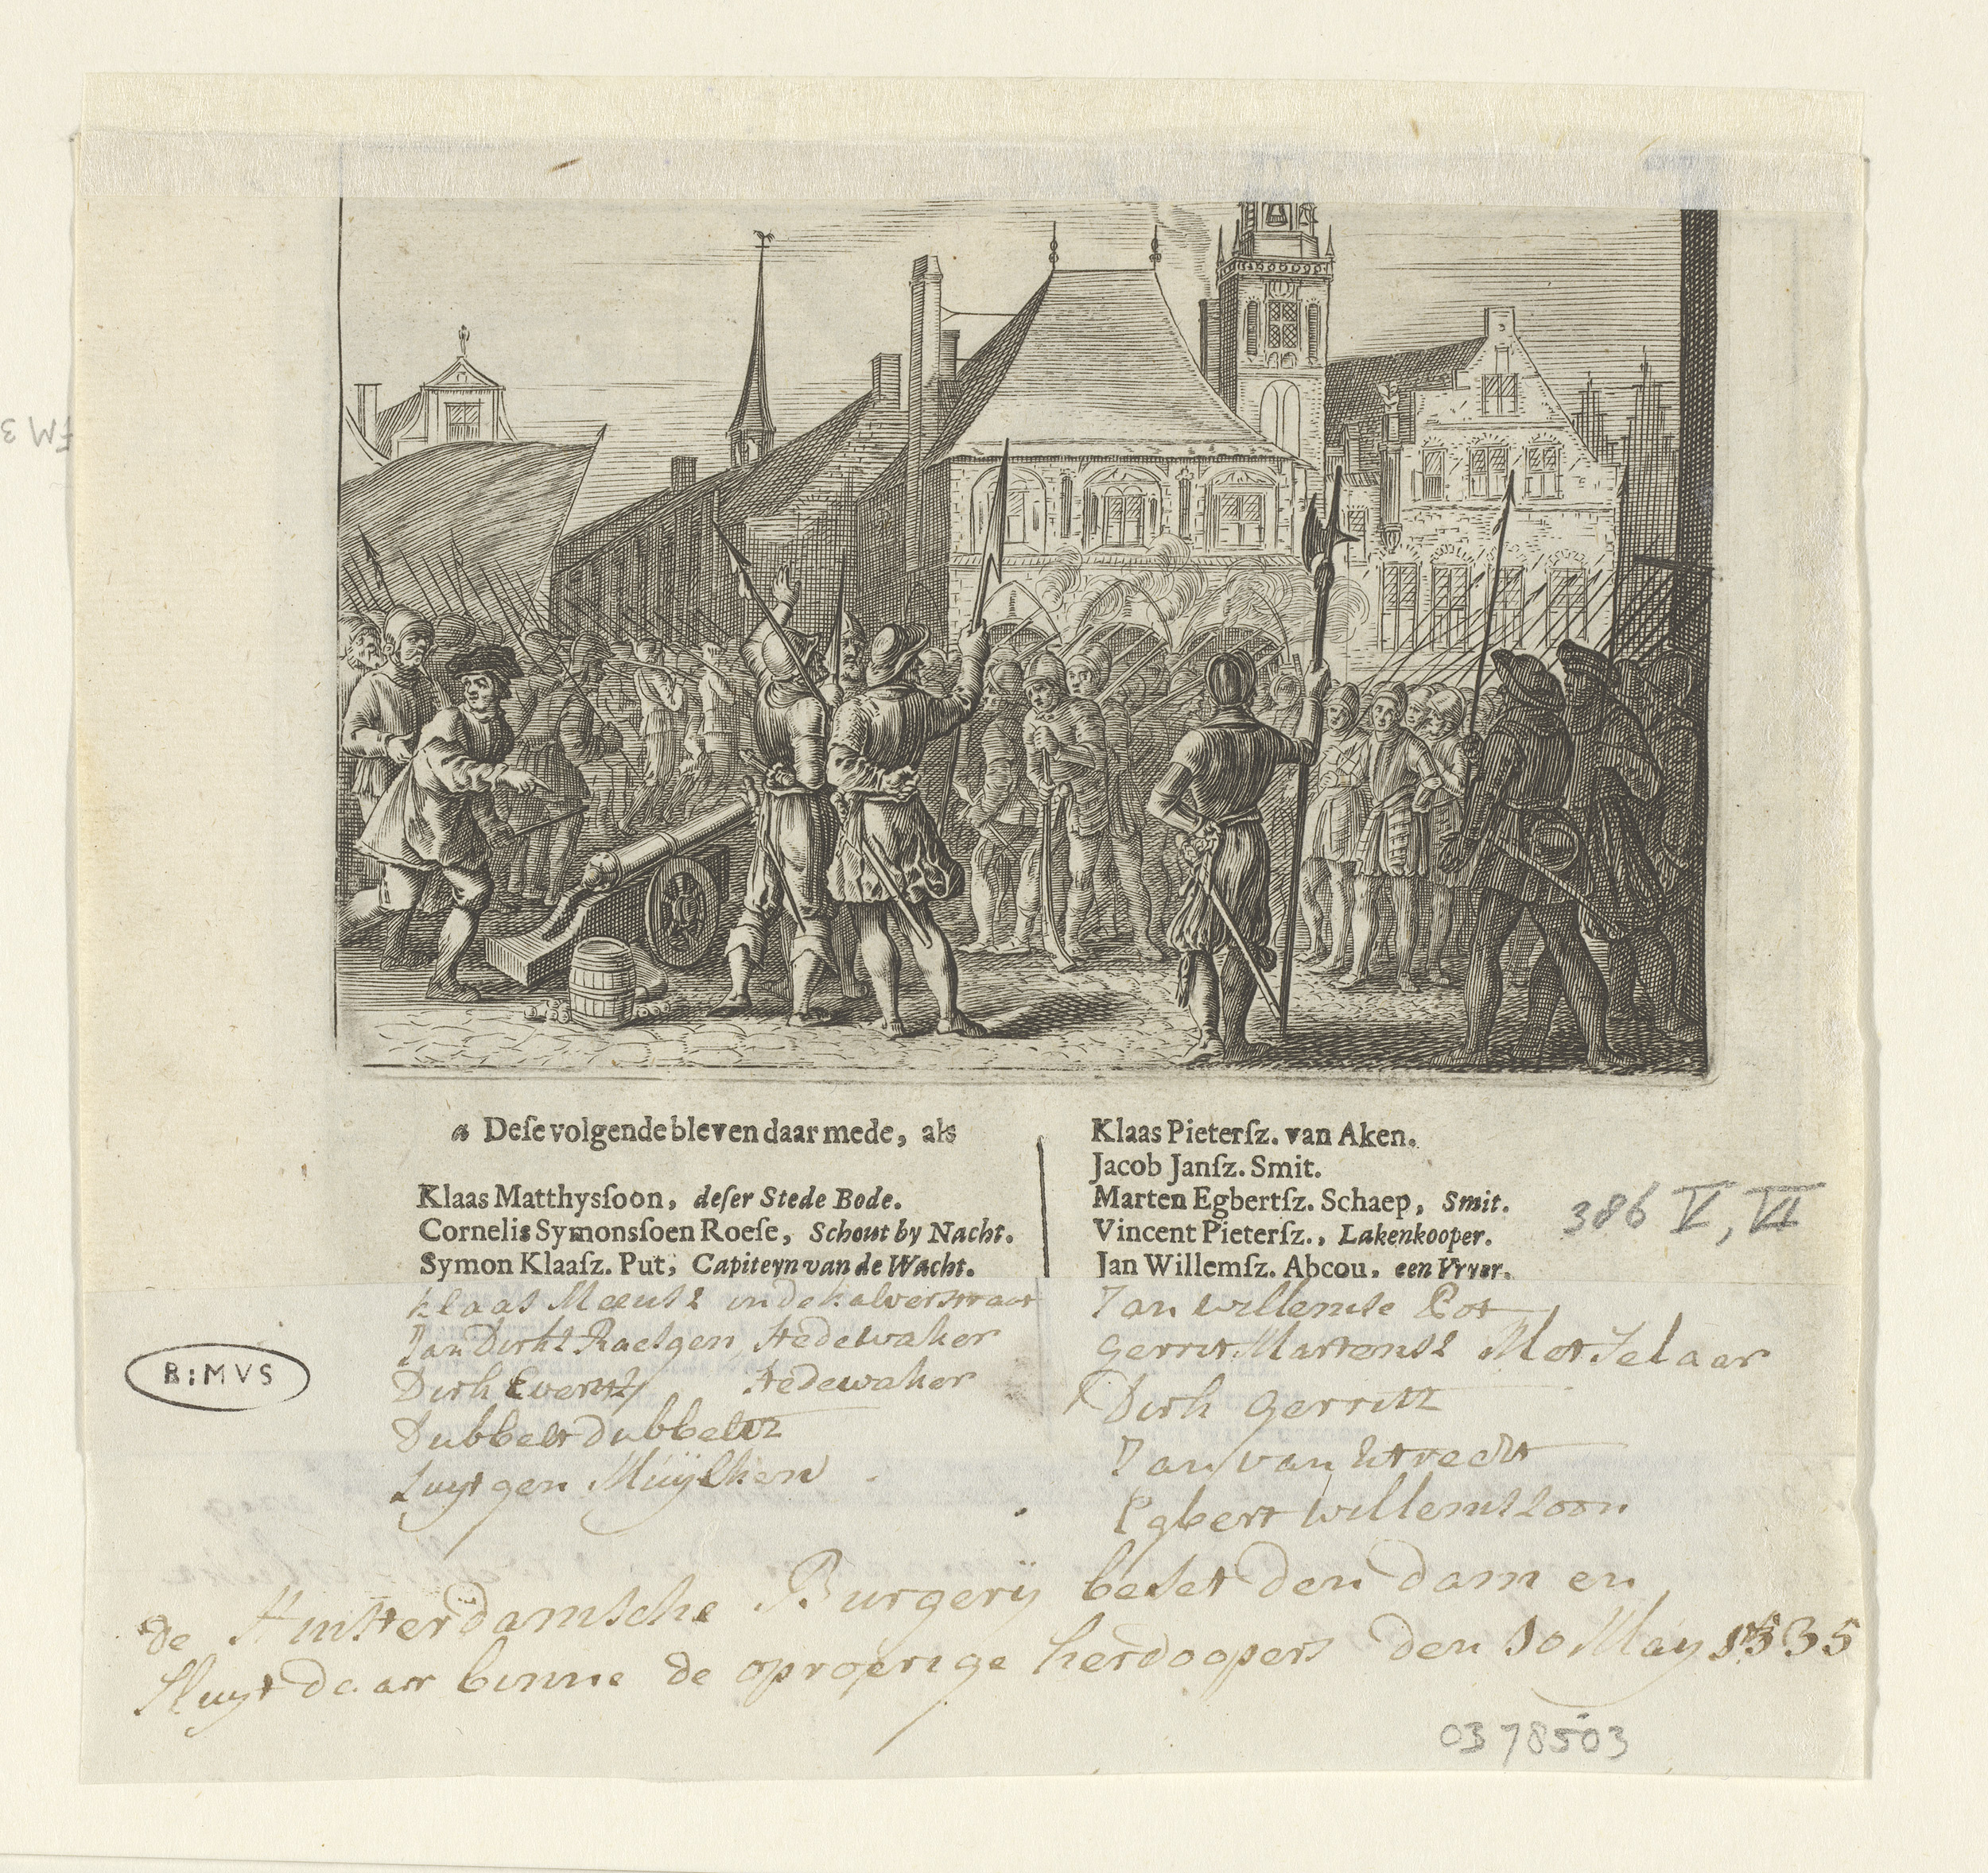 a Deſe volgende bleven daar mede, als
Klaas Matthysſoon, deſer Stede Bode.
Cornelis Symonsſoen Roeſe, Schout by Nacht.
Symon Klaaſz. Put, Capiteyn van de Wacht.
Klaas Meeusz in de kalverstraat
Jan Dirksz Raetgen Stedewaker
Dirk Evertsz Stedewaker
Dubbelt dubbeltz
Luytgen Muÿlken
Klaas Pieterſz. van Aken.
Jacob Janſz. Smit.
Marten Egbertſz. Schaep, Smit.
Vincent Pieterſz., Lakenkooper.
Jan Willemſz. Abcou, een Vryer.
Jan willemse Pot
Gerrit Martensz Metselaar
Dirk Gerritz
Jan van Utrecht
Egbert willemszoon
386 V, VI
B:MVS
de Amsterdamsche Burgerÿ beset den dam en
sluyt daar binne de oproerige herdoopers den 10 May 1535
0378503
FM 3